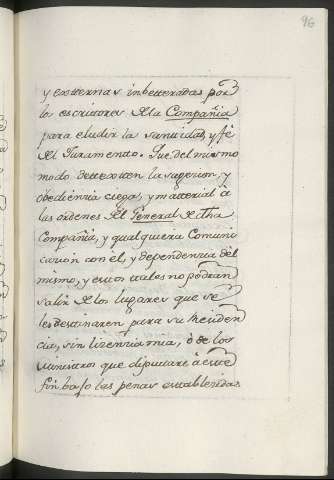 96
y externas inbeteradas por
los escritores de la Compañia
para eludir la santidad, y fé
del Juramento. Que del mismo
modo detesten la sugecion, y
obediencia ciega, y material à
las ordenes del General de dha
Compañia, y qualquiera Comuni
cacion con él, y dependencia del
mismo, y estos tales no podran
salir de los lugares que se
les destinaren para su Residen
cia, sin licencia mia, ò de los
Ministros que diputare à este
fin bajo las penas establecidas